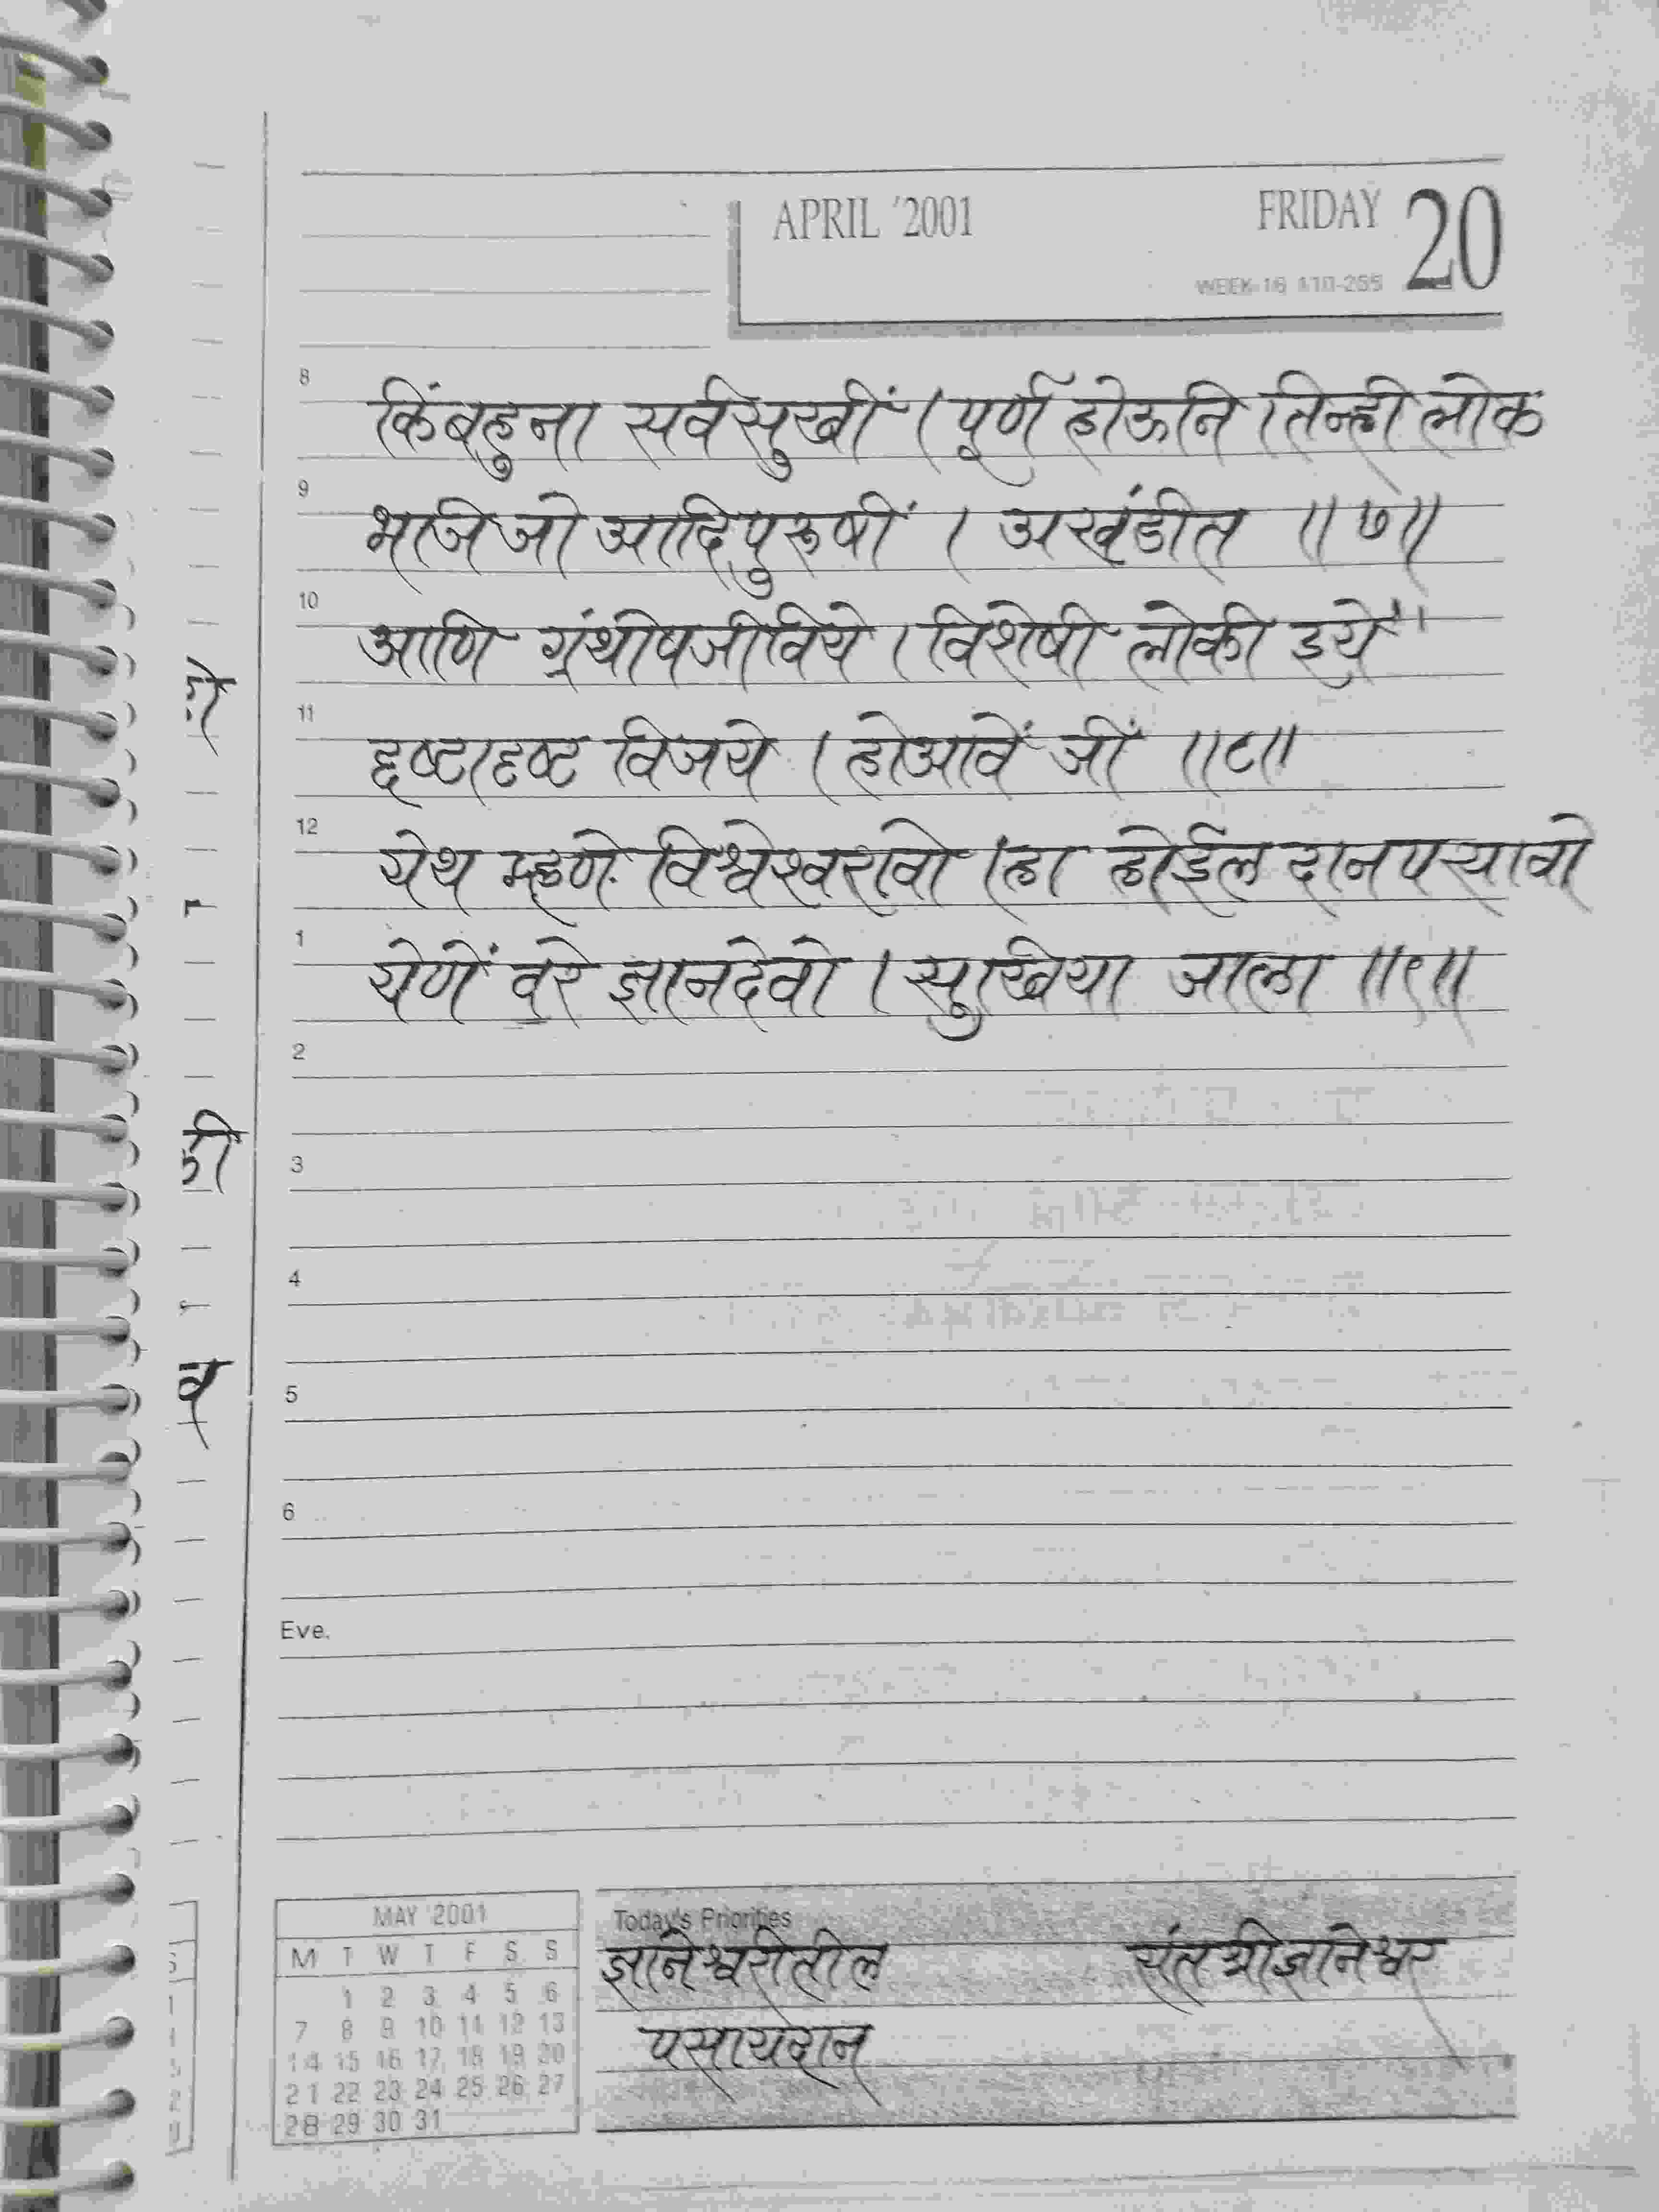 APRIL '2001 FRIDAY 20
WEEK-16 110-255
8 किंबहुना सर्वसुखीं । पूर्ण होऊनि । तिन्ही लोक
9 भजिजो आदिपुरुषीं । अखंडीत ॥७॥
10 आणि ग्रंथोपजीविये । विशेषी लोकी इयें
11 दृष्टादृष्ट विजये । होआवें जीं ॥८॥
12 येथ म्हणे विश्वेश्वरावो । हा होईल दानपसावो
1 येणें वरे ज्ञानदेवो । सुखिया जाला ॥९॥
2
3
4
5
6
Eve.
MAY '2001
M T W T F S S
1 2 3 4 5 6
7 8 9 10 11 12 13
14 15 16 17 18 19 20
21 22 23 24 25 26 27
28 29 30 31
Today's Priorities
ज्ञानेश्वरीतील संत श्रीज्ञानेश्वर
पसायदान